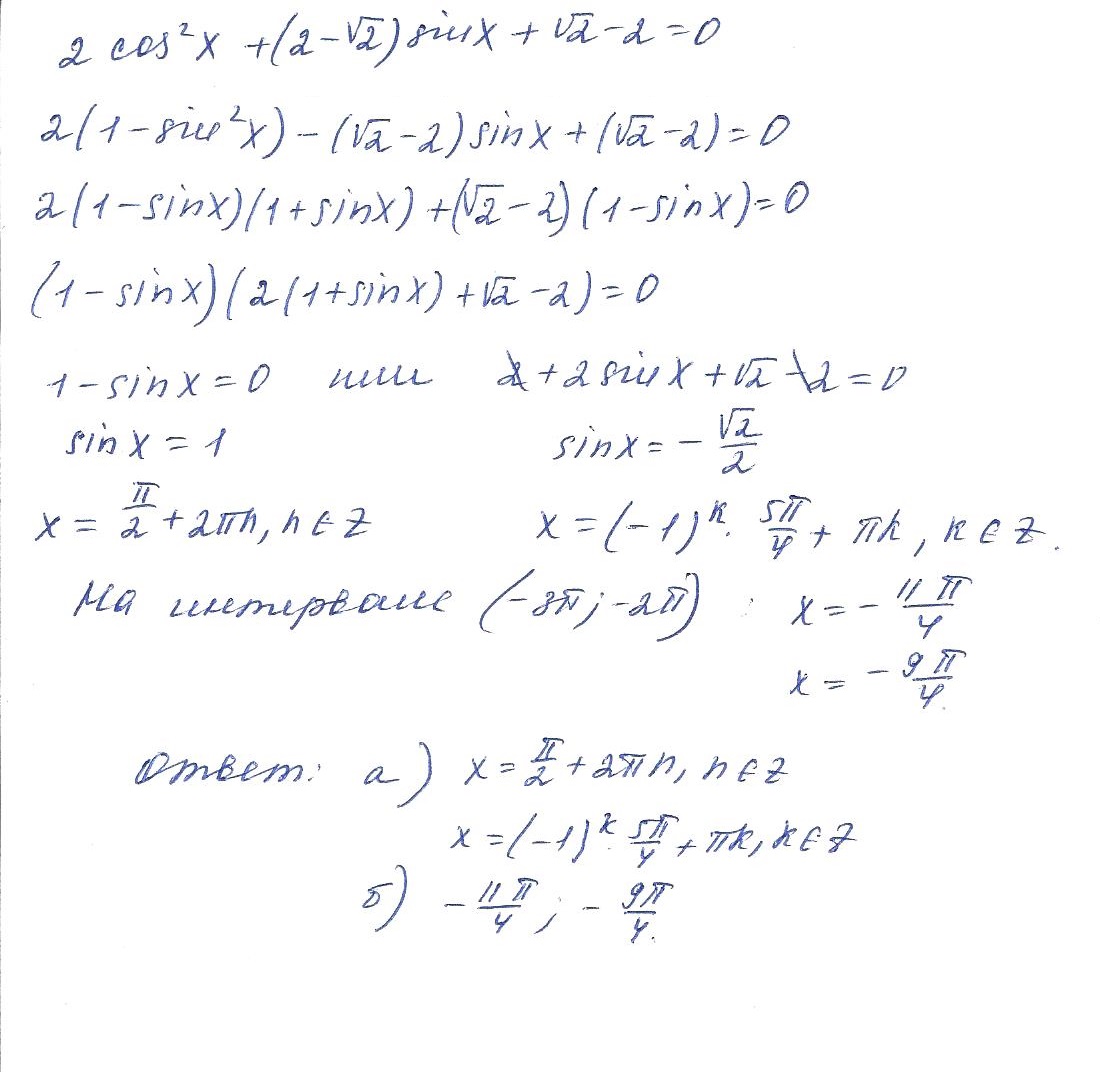 2 cos²x + (2-√2) sinx + √2 - 2 = 0
2(1 - sin²x) - (√2 - 2) sinx + (√2 - 2) = 0
2(1 - sinx)(1 + sinx) + (√2 - 2)(1 - sinx) = 0
(1 - sinx)(2(1 + sinx) + √2 - 2) = 0
1 - sinx = 0 или 2 + 2 sinx + √2 - 2 = 0
sinx = 1 sinx = - √2/2
x = π/2 + 2πn, n ∈ Z x = (-1)ᵏ · 5π/4 + πk, k ∈ Z.
На интервале (-3π; -2π) : x = - 11π/4
x = - 9π/4.
Ответ: а) x = π/2 + 2πn, n ∈ Z
x = (-1)ᵏ · 5π/4 + πk, k ∈ Z
б) - 11π/4 ; - 9π/4.